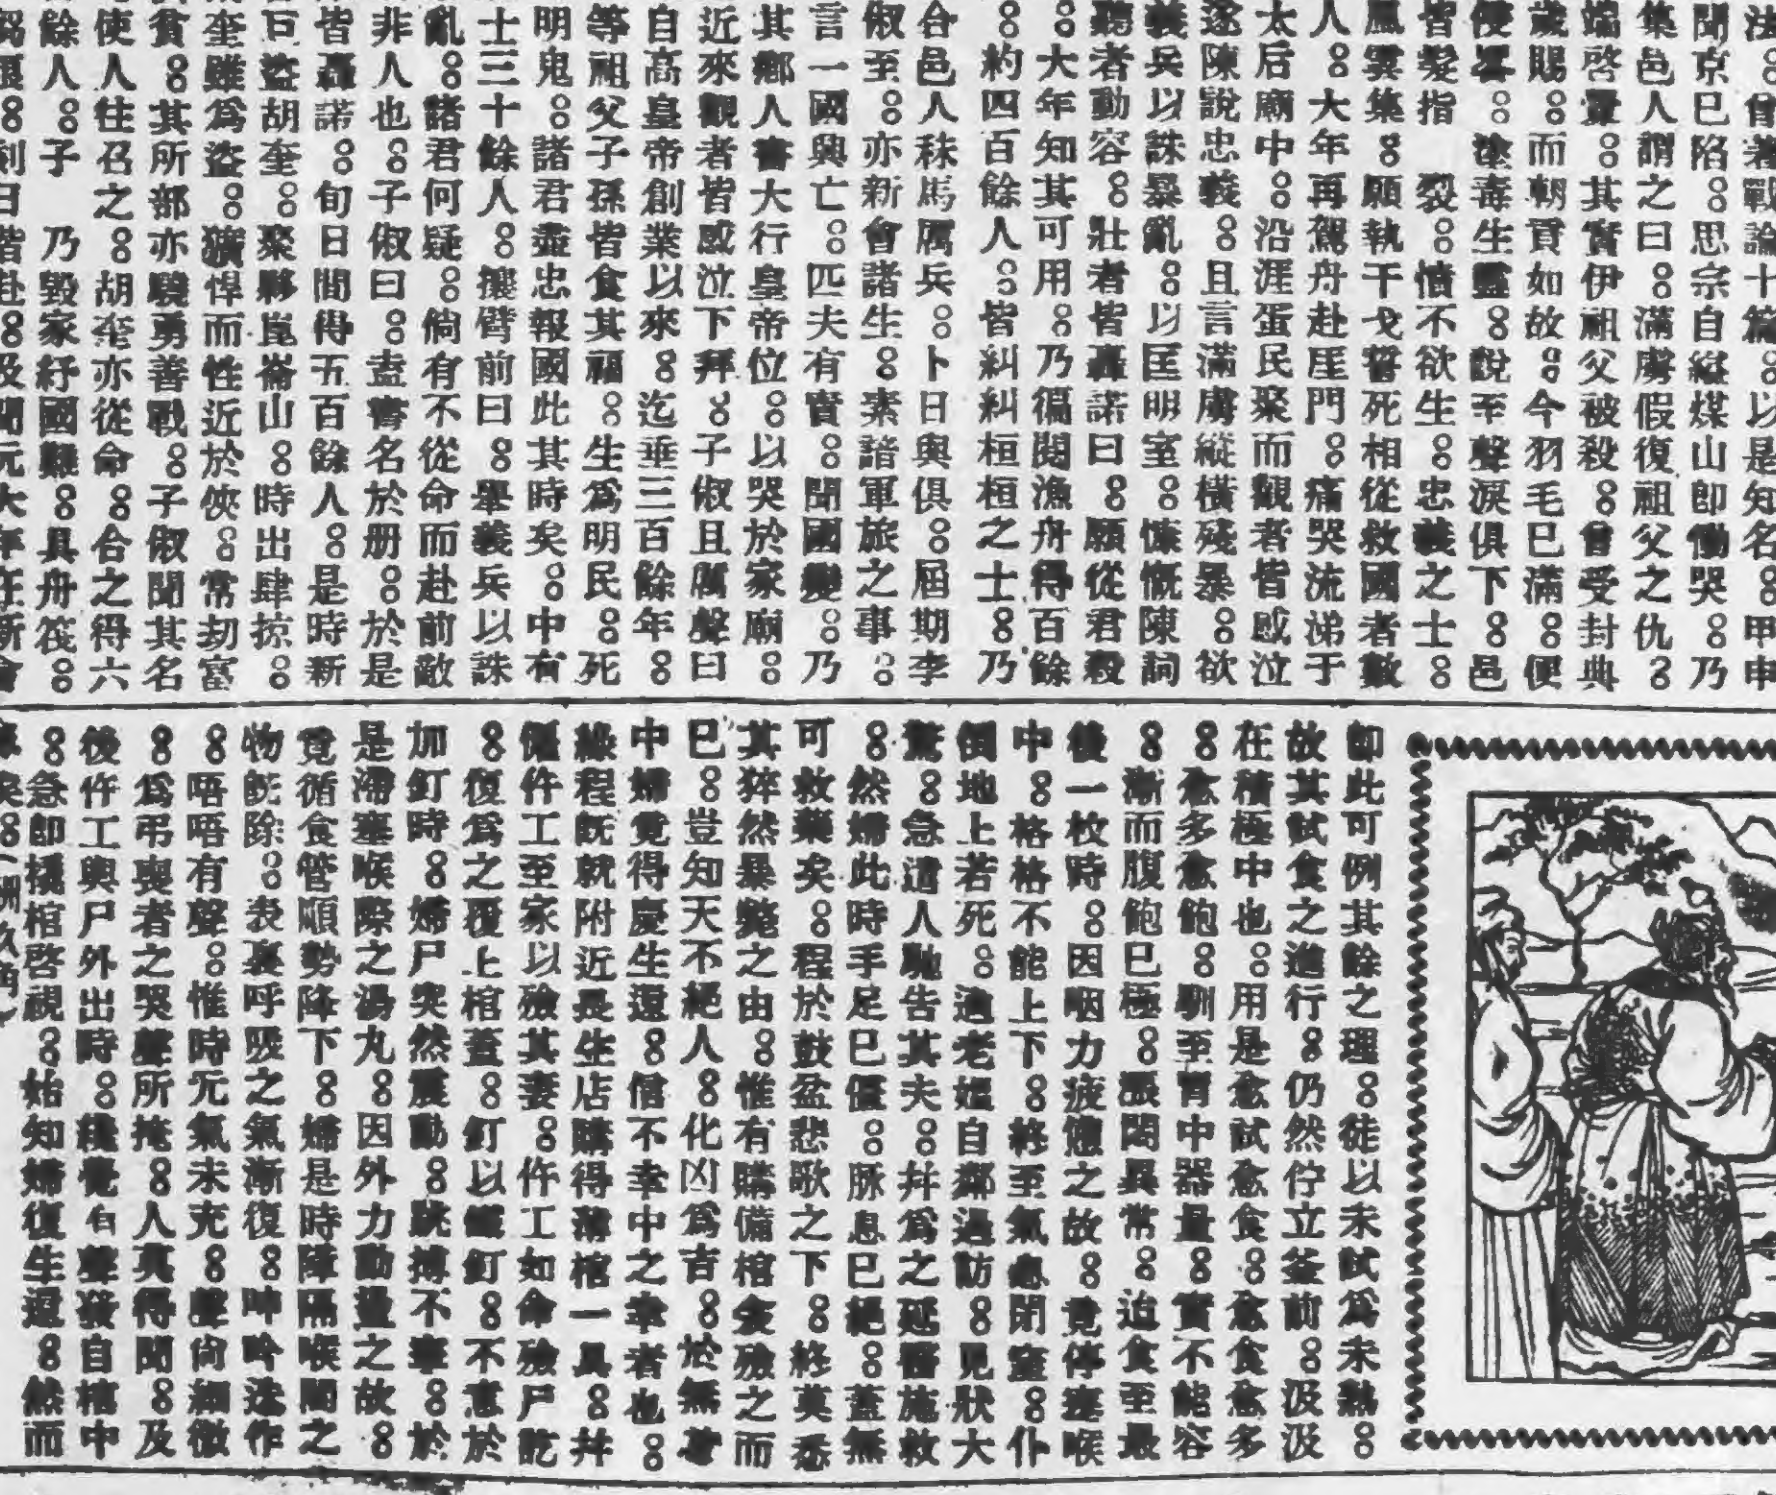 法。曾著戰論十篇。以是知名。甲申
聞京已陷。思宗自縊煤山卽慟哭。乃
集邑人謂之曰。滿虜假復祖父之仇。
端啓釁。其實伊祖父被殺。曾受封典
歲賜。而朝貢如故。今羽毛已滿。便
便畧。塗毒生靈。說至聲淚俱下。邑
皆髮指 裂。憤不欲生。忠義之士。
風雲集。願執干戈誓死相從救國者數
人。大年再駕舟赴厓門。痛哭流涕于
太后廟中。沿涯蛋民聚而觀者皆感泣
遂陳說忠義。且言滿虜縱橫殘暴。欲
義兵以誅暴亂。以匡明室。慷慨陳詞
聽者動容。壯者皆轟諾曰。願從君殺
。大年知其可用。乃徧閱漁舟得百餘
。約四百餘人。皆糾糾桓桓之士。乃
合邑人秣馬厲兵。卜日與俱。屆期李
俶至。亦新會諸生。素諳軍旅之事。
言一國興亡。匹夫有責。聞國變。乃
其鄉人書大行皇帝位。以哭於家廟。
近來觀者皆感泣下拜。子俶且厲聲曰
自高皇帝創業以來。迄垂三百餘年。
等祖父子孫皆食其福。生爲明民。死
明鬼。諸君盡忠報國此其時矣。中有
士三十餘人。攘臂前曰。舉義兵以誅
亂。諸君何疑。倘有不從命而赴前敵
非人也。子俶曰。盍書名於册。於是
皆轟諾。旬日間得五百餘人。是時新
巨盜胡奎。聚夥崑崙山。時出肆掠。
奎雖爲盜。獷悍而性近於俠。常刧富
貧。其所部亦驍勇善戰。子俶聞其名
使人往召之。胡奎亦從命。合之得六
餘人。子 乃毀家紓國難。具舟筏。
糧。刻日皆赴。及聞元大年在新會
卽此可例其餘之理。徒以未試爲未熟。
故其試食之進行。仍然佇立釜前。汲汲
在積極中也。用是愈試愈食。愈食愈多
。愈多愈飽。馴至胃中器量。實不能容
。漸而腹飽已極。漲悶異常。迫食至最
後一枚時。因咽力疲憊之故。竟停塞喉
中。格格不能上下。終至氣息閉窒。仆
倒地上若死。適老嫗自鄰過訪。見狀大
驚。急遣人馳告其夫。幷爲之延醫施救
。然婦此時手足已僵。脉息已絕。蓋無
可救藥矣。程於鼓盆悲歌之下。終莫悉
其猝然暴斃之由。惟有購備棺衾殮之而
已。豈知天不絕人。化凶爲吉。於無意
中婦竟得慶生還。信不幸中之幸者也。
緣程旣就附近長生店購得薄棺一具。幷
僱仵工至家以殮其妻。仵工如命殮尸訖
。復爲之覆上棺蓋。釘以鐵釘。不意於
加釘時。婦尸突然震動。跳搏不寧。於
是滯塞喉際之湯丸。因外力動盪之故。
竟循食管順勢降下。婦是時障隔喉間之
物旣除。表裏呼吸之氣漸復。呻吟迭作
。唔唔有聲。惟時元氣未充。聲尙細微
。爲弔喪者之哭聲所掩。人莫得聞。及
後仵工輿尸外出時。纔覺有聲發自棺中
。急卽撬棺啓視。始知婦復生還。然而